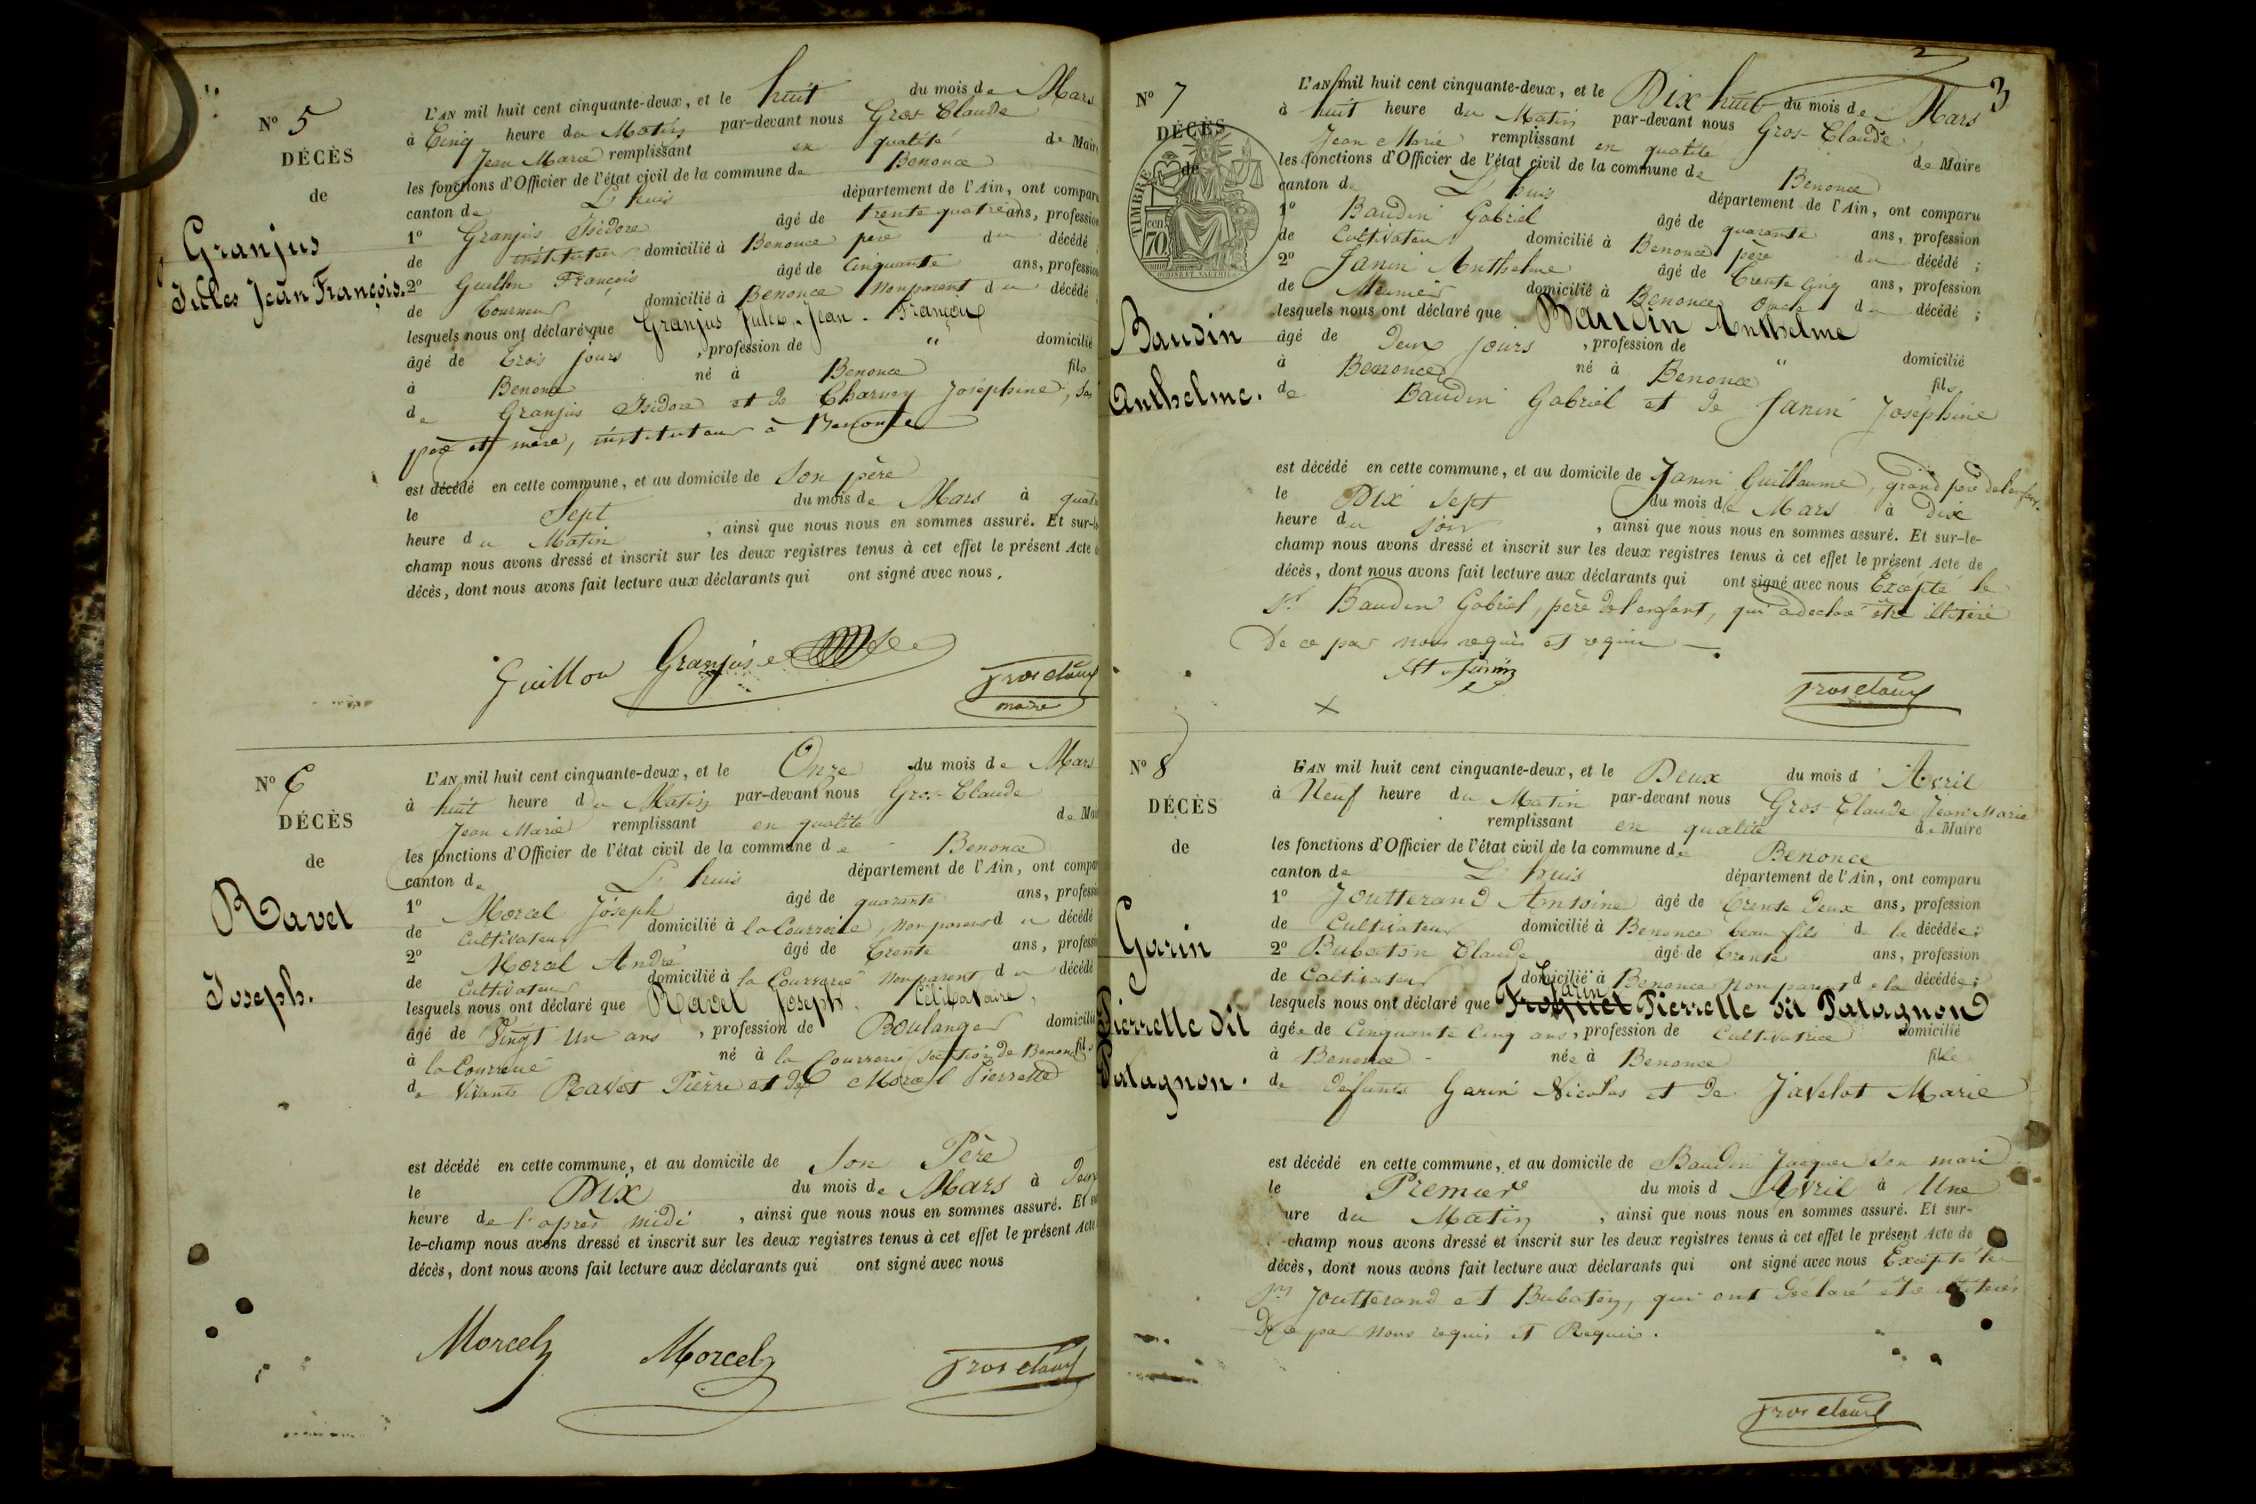 N° 5
DÉCÈS
de
Granjus
Jules Jean François.
L'AN mil huit cent cinquante-deux, et le huit du mois de Mars
à Cinq heure du Matin par-devant nous Gros Claude
Jean Marie remplissant en qualité de Maire
les fonctions d'Officier de l'état civil de la commune de Benonce
canton de L'huis département de l'Ain, ont comparu
1° Granjus Isidore âgé de trente quatre ans, profession
de instituteur domicilié à Benonce père du décédé
2° Guillon François âgé de Cinquante ans, profession
de Tourneur domicilié à Benonce non parent du décédé
lesquels nous ont déclaré que Granjus Jules. Jean. François
âgé de Trois jours , profession de " domicilié
à Benonce né à Benonce fils
de Granjus Isidore et de Charvey Joséphine, Ses
père et mère, instituteur à Benonce
est décédé en cette commune, et au domicile de Son père
le Sept du mois de Mars à quatre
heure du Matin , ainsi que nous nous en sommes assuré. Et sur-le
champ nous avons dressé et inscrit sur les deux registres tenus à cet effet le présent Acte
décès, dont nous avons fait lecture aux déclarants qui ont signé avec nous.
Guillon Granjus Gros claude
maire
N° 6
DÉCÈS
de
Ravet
Joseph.
L'AN mil huit cent cinquante-deux, et le Onze du mois de Mars
à huit heure du Matin par-devant nous Gros-Claude
Jean Marie remplissant en qualité de Mai
les fonctions d'Officier de l'état civil de la commune de Benonce
canton de L'huis département de l'Ain, ont compar
1° Morcel Joseph âgé de quarante ans, professi
de Cultivateur domicilié à la Courrerie, non parent du décédé
2° Morcel André âgé de Trente ans, professi
de Cultivateur domicilié à la Courrerie non parent du décédé
lesquels nous ont déclaré que Ravet Joseph. Célibataire,
âgé de Vingt Un ans , profession de Boulanger domicilié
à la Courrerie né à la Courrerie section de Benonce fils
de Vivants Ravet Pierre et de Morcel Pierrette
est décédé en cette commune, et au domicile de Son Père
le Dix du mois de Mars à deux
heure de l'après midi , ainsi que nous nous en sommes assuré. Et su
le-champ nous avons dressé et inscrit sur les deux registres tenus à cet effet le présent Acte
décès, dont nous avons fait lecture aux déclarants qui ont signé avec nous
Morcel Morcel Gros claude
2
3
N° 7
DÉCÈS
de
TIMBRE
70
Baudin
Anthelme.
L'AN mil huit cent cinquante-deux, et le Dix huit du mois de Mars
à huit heure du Matin par-devant nous Gros-Claude
Jean Marie remplissant en qualité de Maire
les fonctions d'Officier de l'état civil de la commune de Benonce
canton de L'huis département de l'Ain, ont comparu
1° Baudin Gabriel âgé de quarante ans, profession
de Cultivateur domicilié à Benonce père du décédé ;
2° Janin Anthelme âgé de Trente Cinq ans, profession
de Meunier domicilié à Benonce Oncle du décédé ;
lesquels nous ont déclaré que Baudin Anthelme
âgé de Deux jours , profession de " domicilié
à Benonce né à Benonce fils
de Baudin Gabriel et de Janin Joséphine
est décédé en cette commune, et au domicile de Janin Guillaume, grand père de l'enfant.
le Dix Sept du mois de Mars à Dix
heure du Soir , ainsi que nous nous en sommes assuré. Et sur-le-
champ nous avons dressé et inscrit sur les deux registres tenus à cet effet le présent Acte de
décès, dont nous avons fait lecture aux déclarants qui ont signé avec nous Excepté le
Sr Baudin Gabriel, père de l'enfant, qui a déclaré être illitéré
De ce par nous requis et requis
At Janin
Gros claude
N° 8
DÉCÈS
de
Garin
Pierrette dit
Patagnon.
L'AN mil huit cent cinquante-deux, et le Deux du mois d'Avril
à Neuf heure du Matin par-devant nous Gros-Claude Jean Marie
remplissant en qualité de Maire
les fonctions d'Officier de l'état civil de la commune de Benonce
canton de L'huis département de l'Ain, ont comparu
1° Joutterand Antoine âgé de Trente Deux ans, profession
de Cultivateur domicilié à Benonce beau fils de la décédée ;
2° Bubaton Claude âgé de Trente ans, profession
de Cultivateur domicilié à Benonce non parent de la décédée ;
Garin
lesquels nous ont déclaré que Pierrette dit Patagnon
âgée de Cinquante Cinq ans, profession de Cultivatrice domicilié
à Benonce née à Benonce fille
de défunts Garin Nicolas et de Javelot Marie
est décédé en cette commune, et au domicile de Baudin Jacques son mari
le Premier du mois d Avril à Une
ure du Matin , ainsi que nous nous en sommes assuré. Et sur-
-champ nous avons dressé et inscrit sur les deux registres tenus à cet effet le présent Acte de
décès, dont nous avons fait lecture aux déclarants qui ont signé avec nous Excepté les
Joutterand et Bubaton, qui ont déclaré être illitérés
De ce par nous requis et Requis.
Gros claude